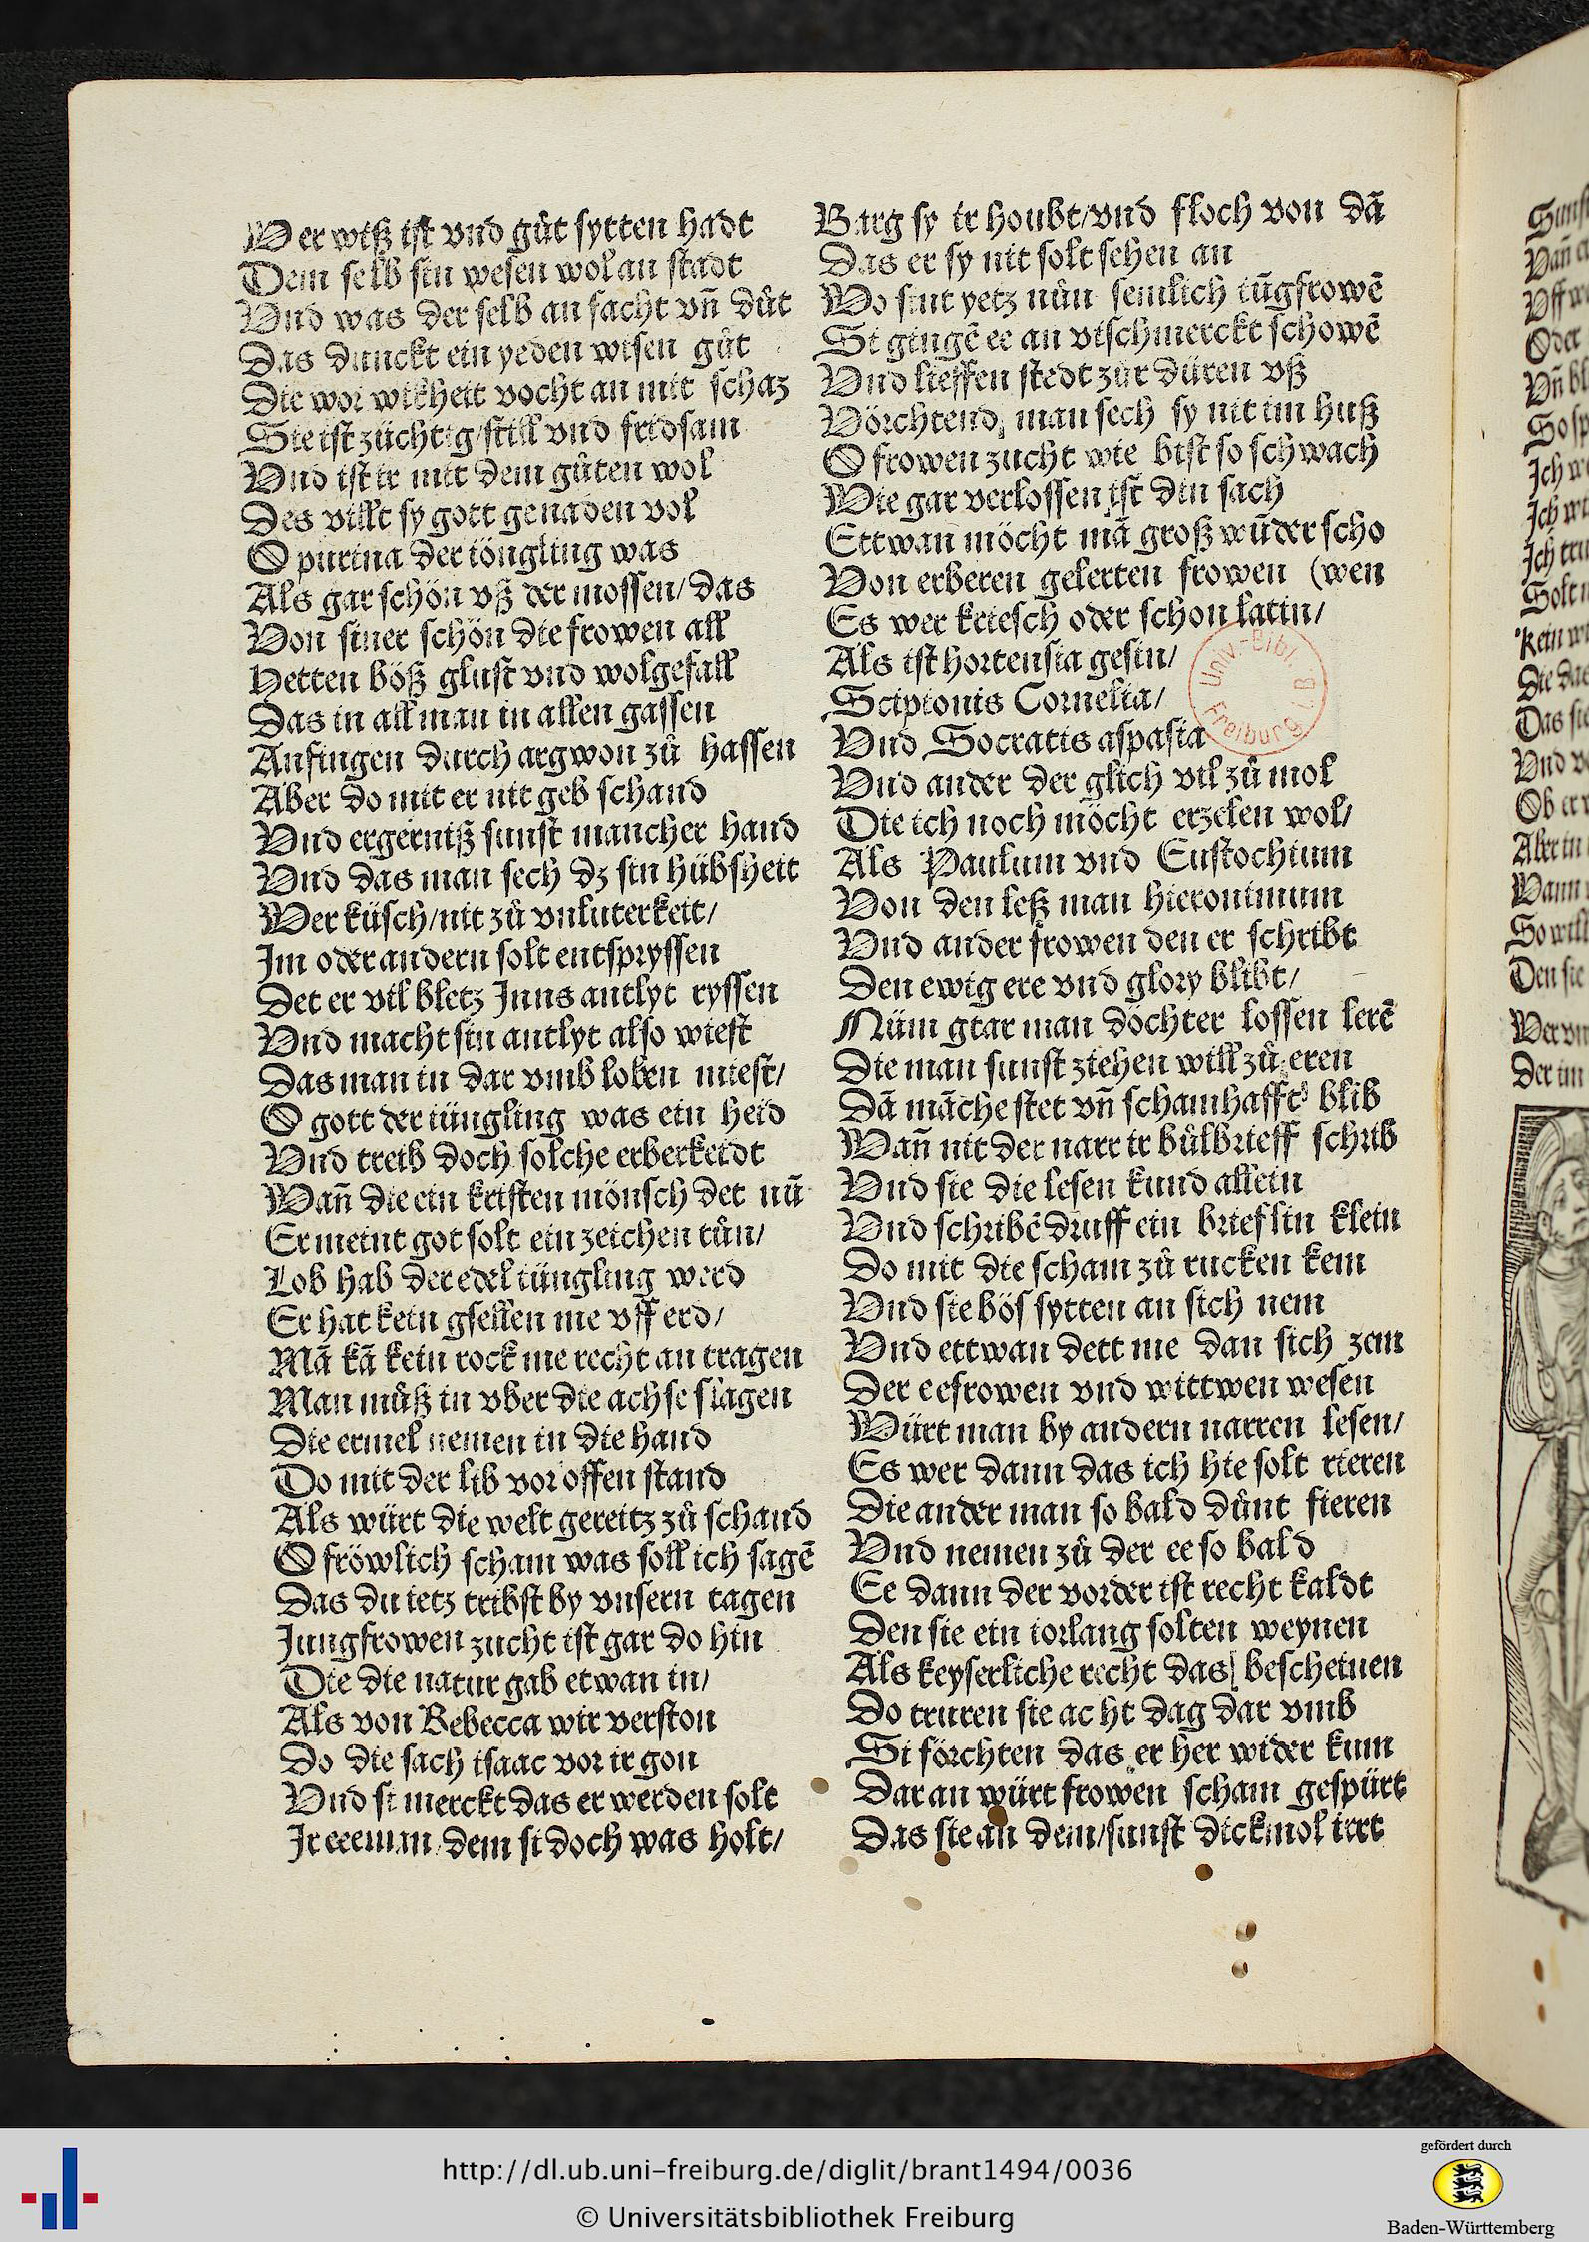 Wer wiß ist vnd gůt sytten hadt
Dem selb sin wesen wol an stadt
Vnd was der selb an facht vn̄ důt
Das dunckt ein yeden wisen gůt
Die wor wißheit vocht an mit schaz
Sie ist züchtig/still vnd fridsam
Vnd ist ir mit dem gůten wol
Des villt sy gott genaden vol
O purina der iöngling was
Als gar schön vß der mossen/das
Von siner schön die frowen all
Hetten böß glust vnd wolgefall
Das in all man in allen gassen
Anfingen durch argwon zů hassen
Aber do mit er nit geb schand
Vnd ergerniß sunst mancher hand
Vnd das man sech dz sin hübsheit
Wer küsch/nit zů vnluterkeit/
Im oder andern solt entspryssen
Det er vil bletz Inns antlyt ryssen
Vnd macht sin antlyt also wiest
Das man in dar vmb loben miest/
O gott der iüngling was ein heid
Vnd treib doch solche erberkeidt
Wan̄ die ein kristen mönsch det nū
Er meint got solt ein zeichen tůn/
Lob hab der edel iüngling werd
Er hat kein gsellen me vff erd/
Mā kā kein rock me recht an tragen
Man můß in vber die achse slagen
Die ermel nemen in die hand
Do mit der lib vor offen stand
Als würt die welt gereitz zů schand
O fröwlich scham was soll ich sagē
Das du ietz tribst by vnsern tagen
Jungfrowen zucht ist gar do hin
Die die natur gab etwan in/
Als von Rebecca wir verston
Do die sach isaac vor ir gon
Vnd si merckt das er werden solt
Ir eeeman dem si doch was holt/
Barg sy ir houbt/vnd floch von dā
Das er sy nit solt sehen an
Wo sint yetz nůn semlich iūgfrowē
Si gingē ee an vischmerckt schowē
Vnd lieffen stedt zůr düren vß
Vörchtend, man sech sy nit im huß
O frowen zucht wie bist so schwach
Wie gar verlossen ist din sach
Ettwan möcht mā groß wūder scho
Von erberen gelerten frowen (wen
Es wer kriesch oder schon latin/
Als ist hortensia gesin/
Scipionis Cornelia/
Vnd Socratis aspasia
Vnd ander der glich vil zů mol
Die ich noch möcht erzelen wol/
Als Paulum vnd Eustochium
Von den leß man hieronimum
Vnd ander frowen den er schribt
Den ewig ere vnd glory blibt/
Nüm gtar man dochter lossen lerē
Die man sunst ziehen will zů eren
Dā māche stet vn̄ schamhafft blib
Wan̄ nit der narr ir bůlbrieff schrib
Vnd sie die lesen kund allein
Vnd schribē druff ein brieflin klein
Do mit die scham zů rucken kem
Vnd sie bös sytten an sich nem
Vnd ettwan dett me dan sich zem
Der eefrowen vnd wittwen wesen
Würt man by andern narren lesen/
Es wer dann das ich hie solt rieren
Die ander man so bald důnt fieren
Vnd nemen zů der ee so bald
Ee dann der vorder ist recht kaldt
Den sie ein iorlang solten weynen
Als keyserliche recht das bescheinen
Do truren sie acht dag dar vmb
Si förchten das er her wider kum
Dar an würt frowen scham gespürt
Das sie an dem/sunst dickmol irrt
Univ.-Bibl.
Freiburg i B
http://dl.ub.uni-freiburg.de/diglit/brant1494/0036
© Universitätsbibliothek Freiburg
gefördert durch
Baden-Württemberg